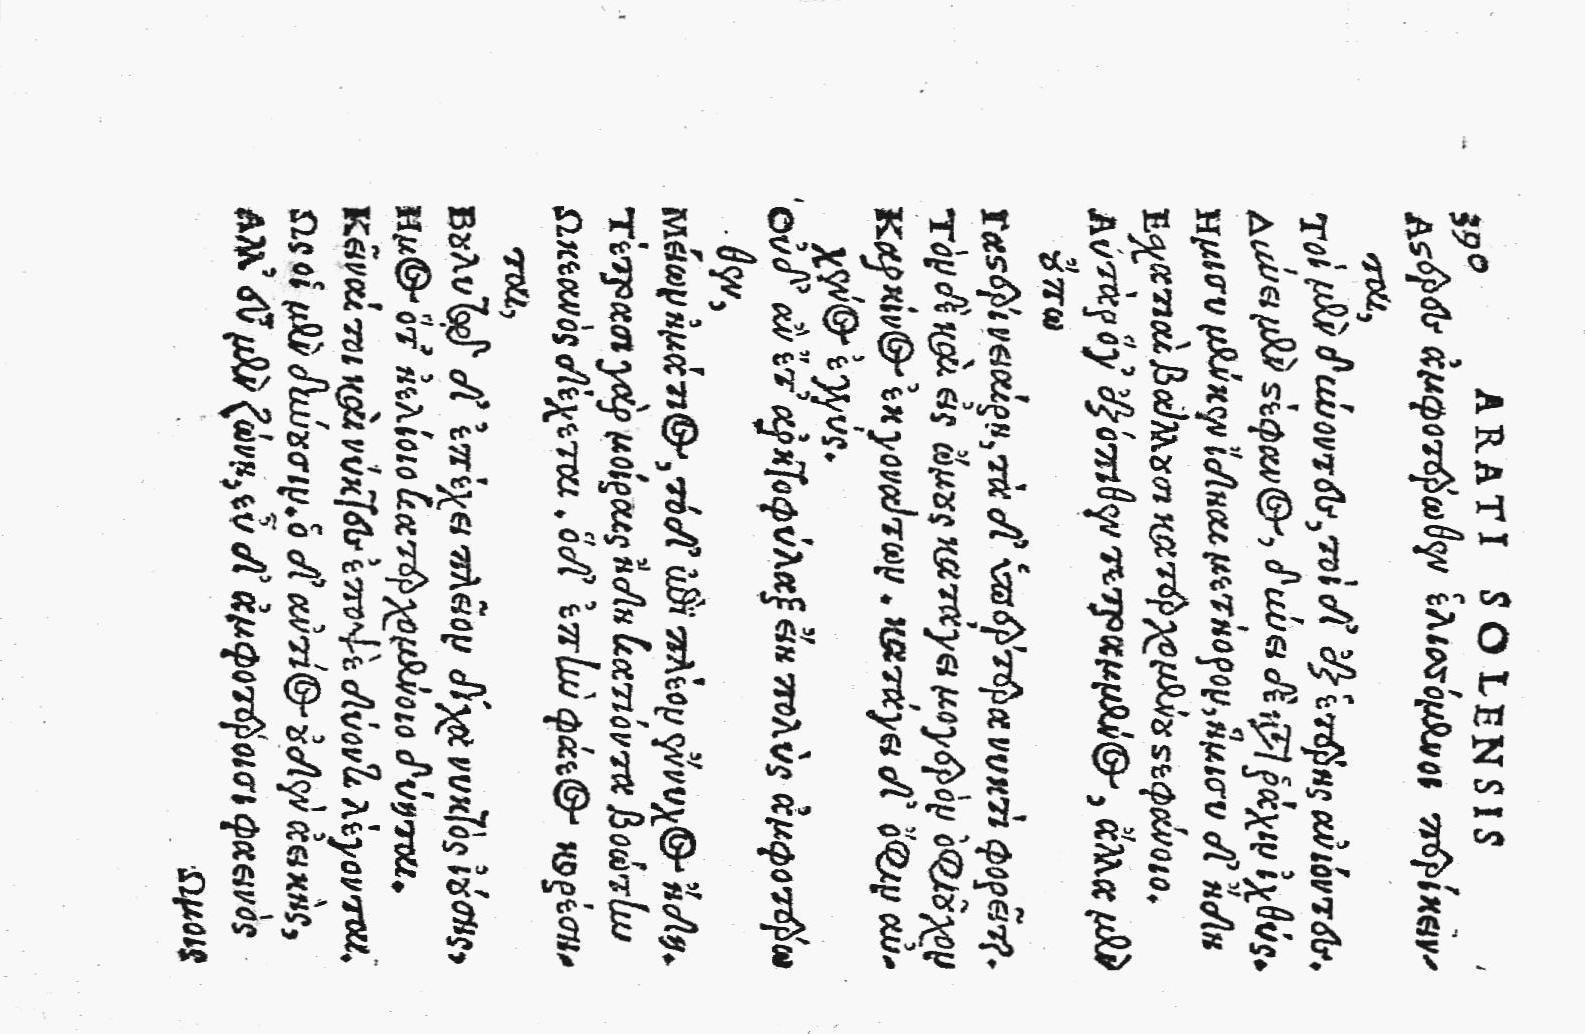 390 ARATI SOLENSIS
Ἀστέρες ἀμφοτέρωθεν ἑλισσόμενοι περίκειν-
ται,
Τοὶ μὲν δύνοντες, τοὶ δ' ἐξ ἑτέρης ἀνιόντες.
Δύνει μὲν στέφανος, δύνει δὲ κατὰ ῥάχιν ἰχθύς.
Ημισυ μέν κεν ἴδηαι μετήορον, ἥμισυ δ' ἤδη
Εχατιαὶ βάλλουσι κατερχομένου στεφάνοιο.
Αὐτὰρ ὅγ' ἐξόπιθεν τετραμμένος, ἄλλα μὲν
οὔπω
Γαστέρι νειαίρη, τὰ δ' ὑπέρτερα νυκτὶ φορεῖτ.
Τὸν δὲ καὶ εἰς ὤμους κατάγει μογερὸν ὀφιοῦχον
Καρκίνος ἐκ γονάτων. κατάγει δ' ὄφιν αὐ-
χένος ἐγγύς.
Οὐδ' ἂν ἔτ' ἀρκτοφύλαξ εἴη πολὺς ἀμφοτέρω
θεν,
Μείων ἠμάτιος, τὸ δ' ἐπὶ πλέον ἔννυχος ἤδη.
Τέτρασι γὰρ μοίραις ἤδη κατιόντα βοώτην
Ωκεανὸς δέχεται. ὁ δ' ἐπὴν φάεος κορέση-
ται,
Βουλυτῷ δ' ἐπέχει πλεῖον δίχα νυκτὸς ἰούσης,
Ημος ὅτ' ἠελίοιο κατερχομένοιο δύηται.
Κεῖναί τοι καὶ νύκτες ἐποψὲ δύοντι λέγονται.
Ως οἱ μὲν δύνουσιν. ὁ δ' ἀντίος οὐδὲν ἀεικὴς,
Ἀλλ' εὖ μὲν ζώνη, εὖ δ' ἀμφοτέροισι φαεινός
Ωμοις